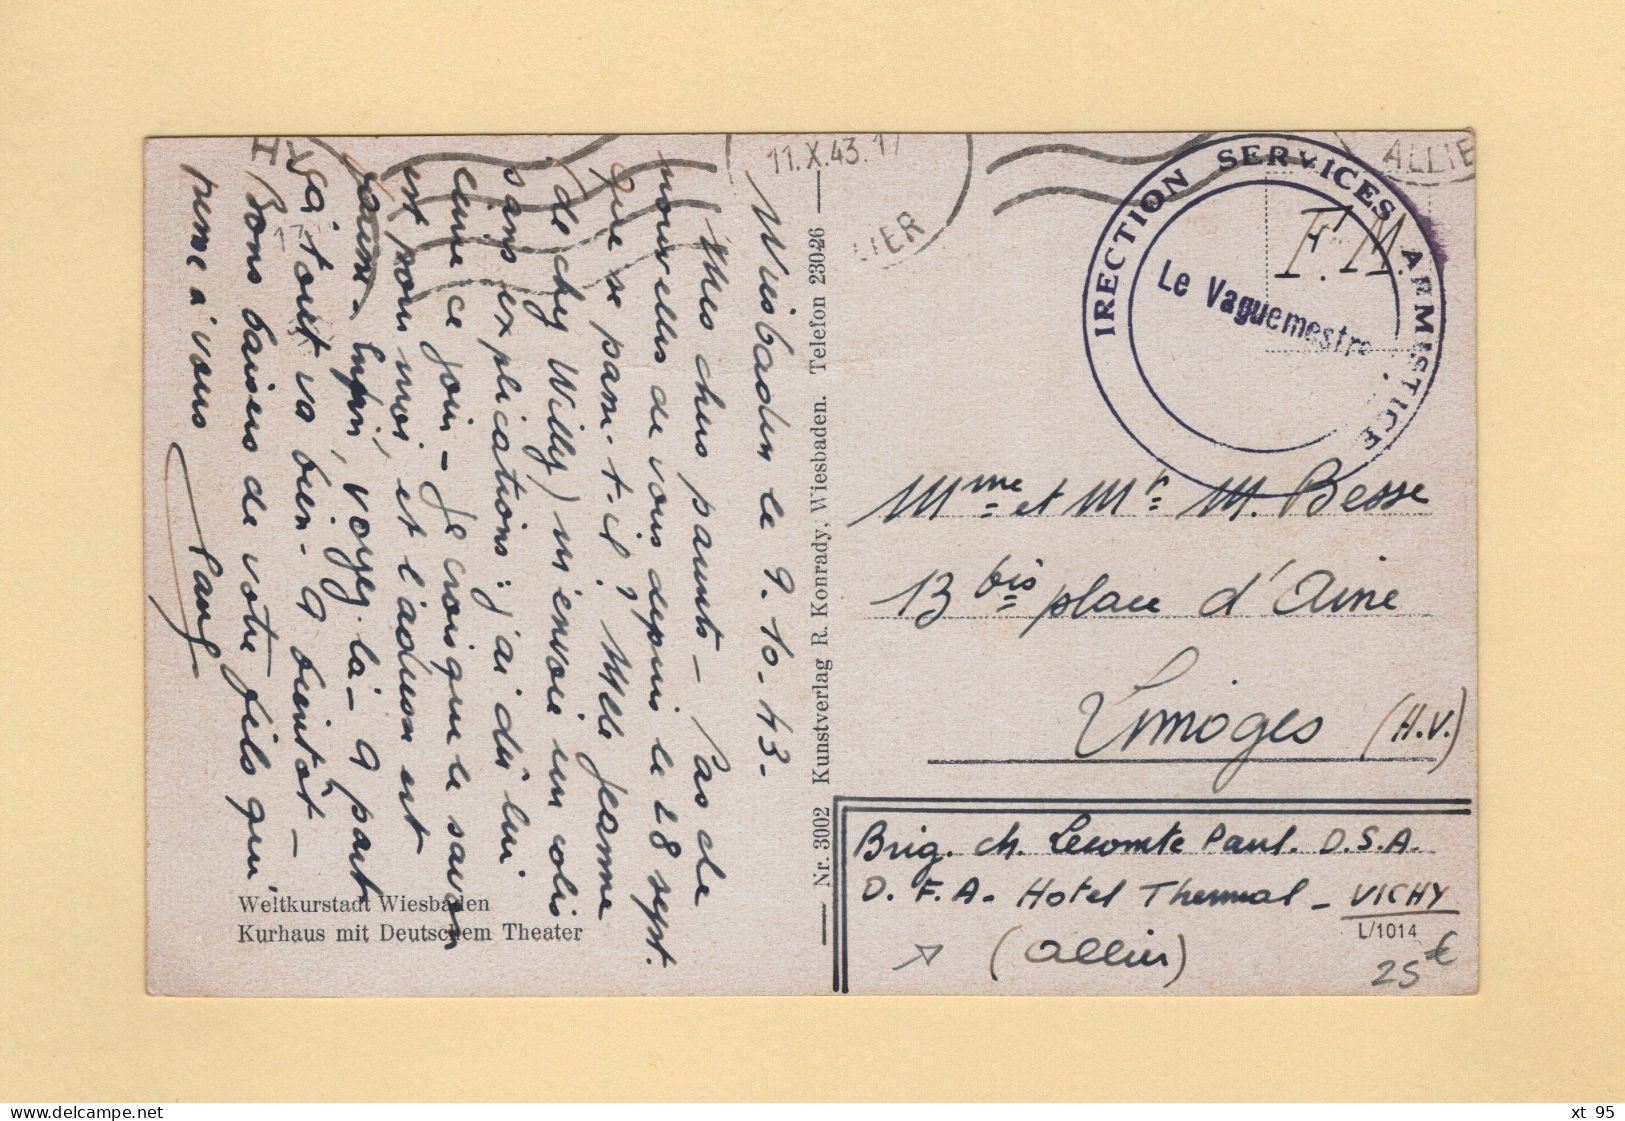 Wiesbaden le 9.10.43-
Mes chers parents - Pas de
nouvelles de vous depuis le 28 sept.
Que se passe-t-il? Melle Jeanne
(de chez Willy) m'envoie un colis
sans explications: j'ai dû lui
Je crois que le savon
est pour moi, et l'adresse est
Enfin, voyez-là - A part
çà tout va bien - A bientôt -
Bons baisers de votre fils qui
pense à vous
Paul
Weltkurstadt Wiesbaden
Kurhaus mit Deutschem Theater
Nr. 3002 Kunstverlag R. Konrady, Wiesbaden. Telefon 23026
11.X.43.17
LIER
ALLIE
IRECTION SERVICES ARMISTICE
Le Vaguemestre
F.M.
Mme et Mr M. Besse
13 bis place d'Aine
Limoges (H.V.)
Brig. ch. Lecomte Paul. D.S.A.
D.F.A. Hotel Thermal - VICHY
(Allier)
L/1014
25 €
www.delcampe.net
xt 95